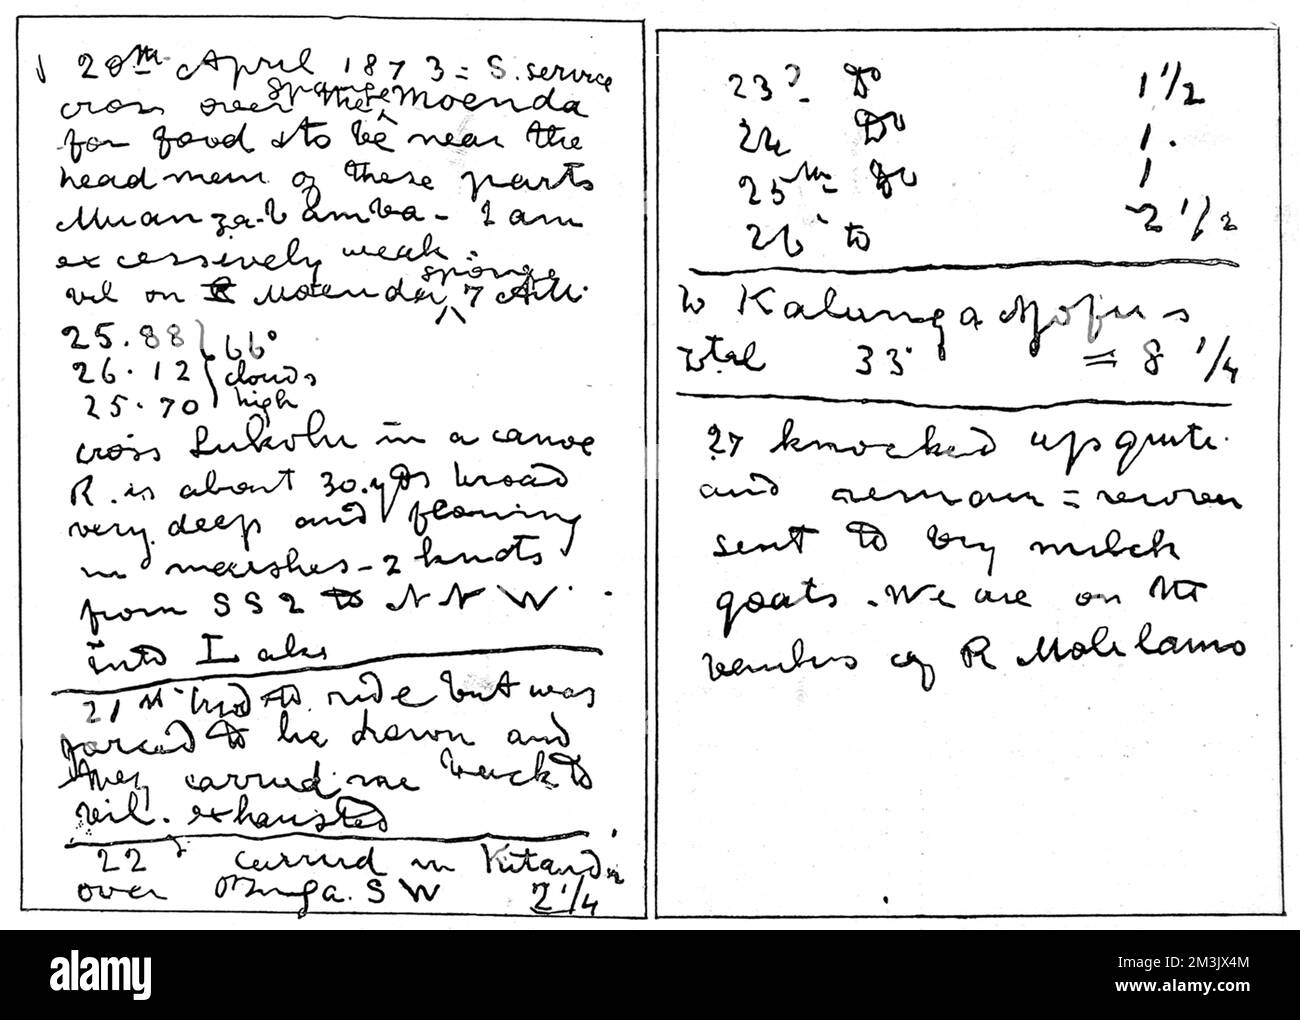 20th April 1873 = S. service
cross over the sponge Moenda
for food & to be near the
headmen of these parts
Muanzambamba - I am
excessively weak -
vil on R Moenda sponge 7 AM.
25.88
26.12 66°
25.70 clouds high
cross Lukolu in a canoe
R. is about 30 yds broad
very deep and flowing
in marshes - 2 knots
from SSE to NNW
into Lake
21st tried to ride but was
forced to lie down and
they carried me back to
vil. exhausted
22d carried in Kitanda
over Buga. S W 2 1/4
23d Do 1 1/2
24 Do 1.
25th Do 1
26 to 2 1/2
to Kalunganjofu s
total 33 = 8 1/4
27 knocked up quite
and remain = recover
sent to buy milch
goats. We are on the
banks of R Molilamo
alamy
Image ID: 2M3JX4M
www.alamy.com